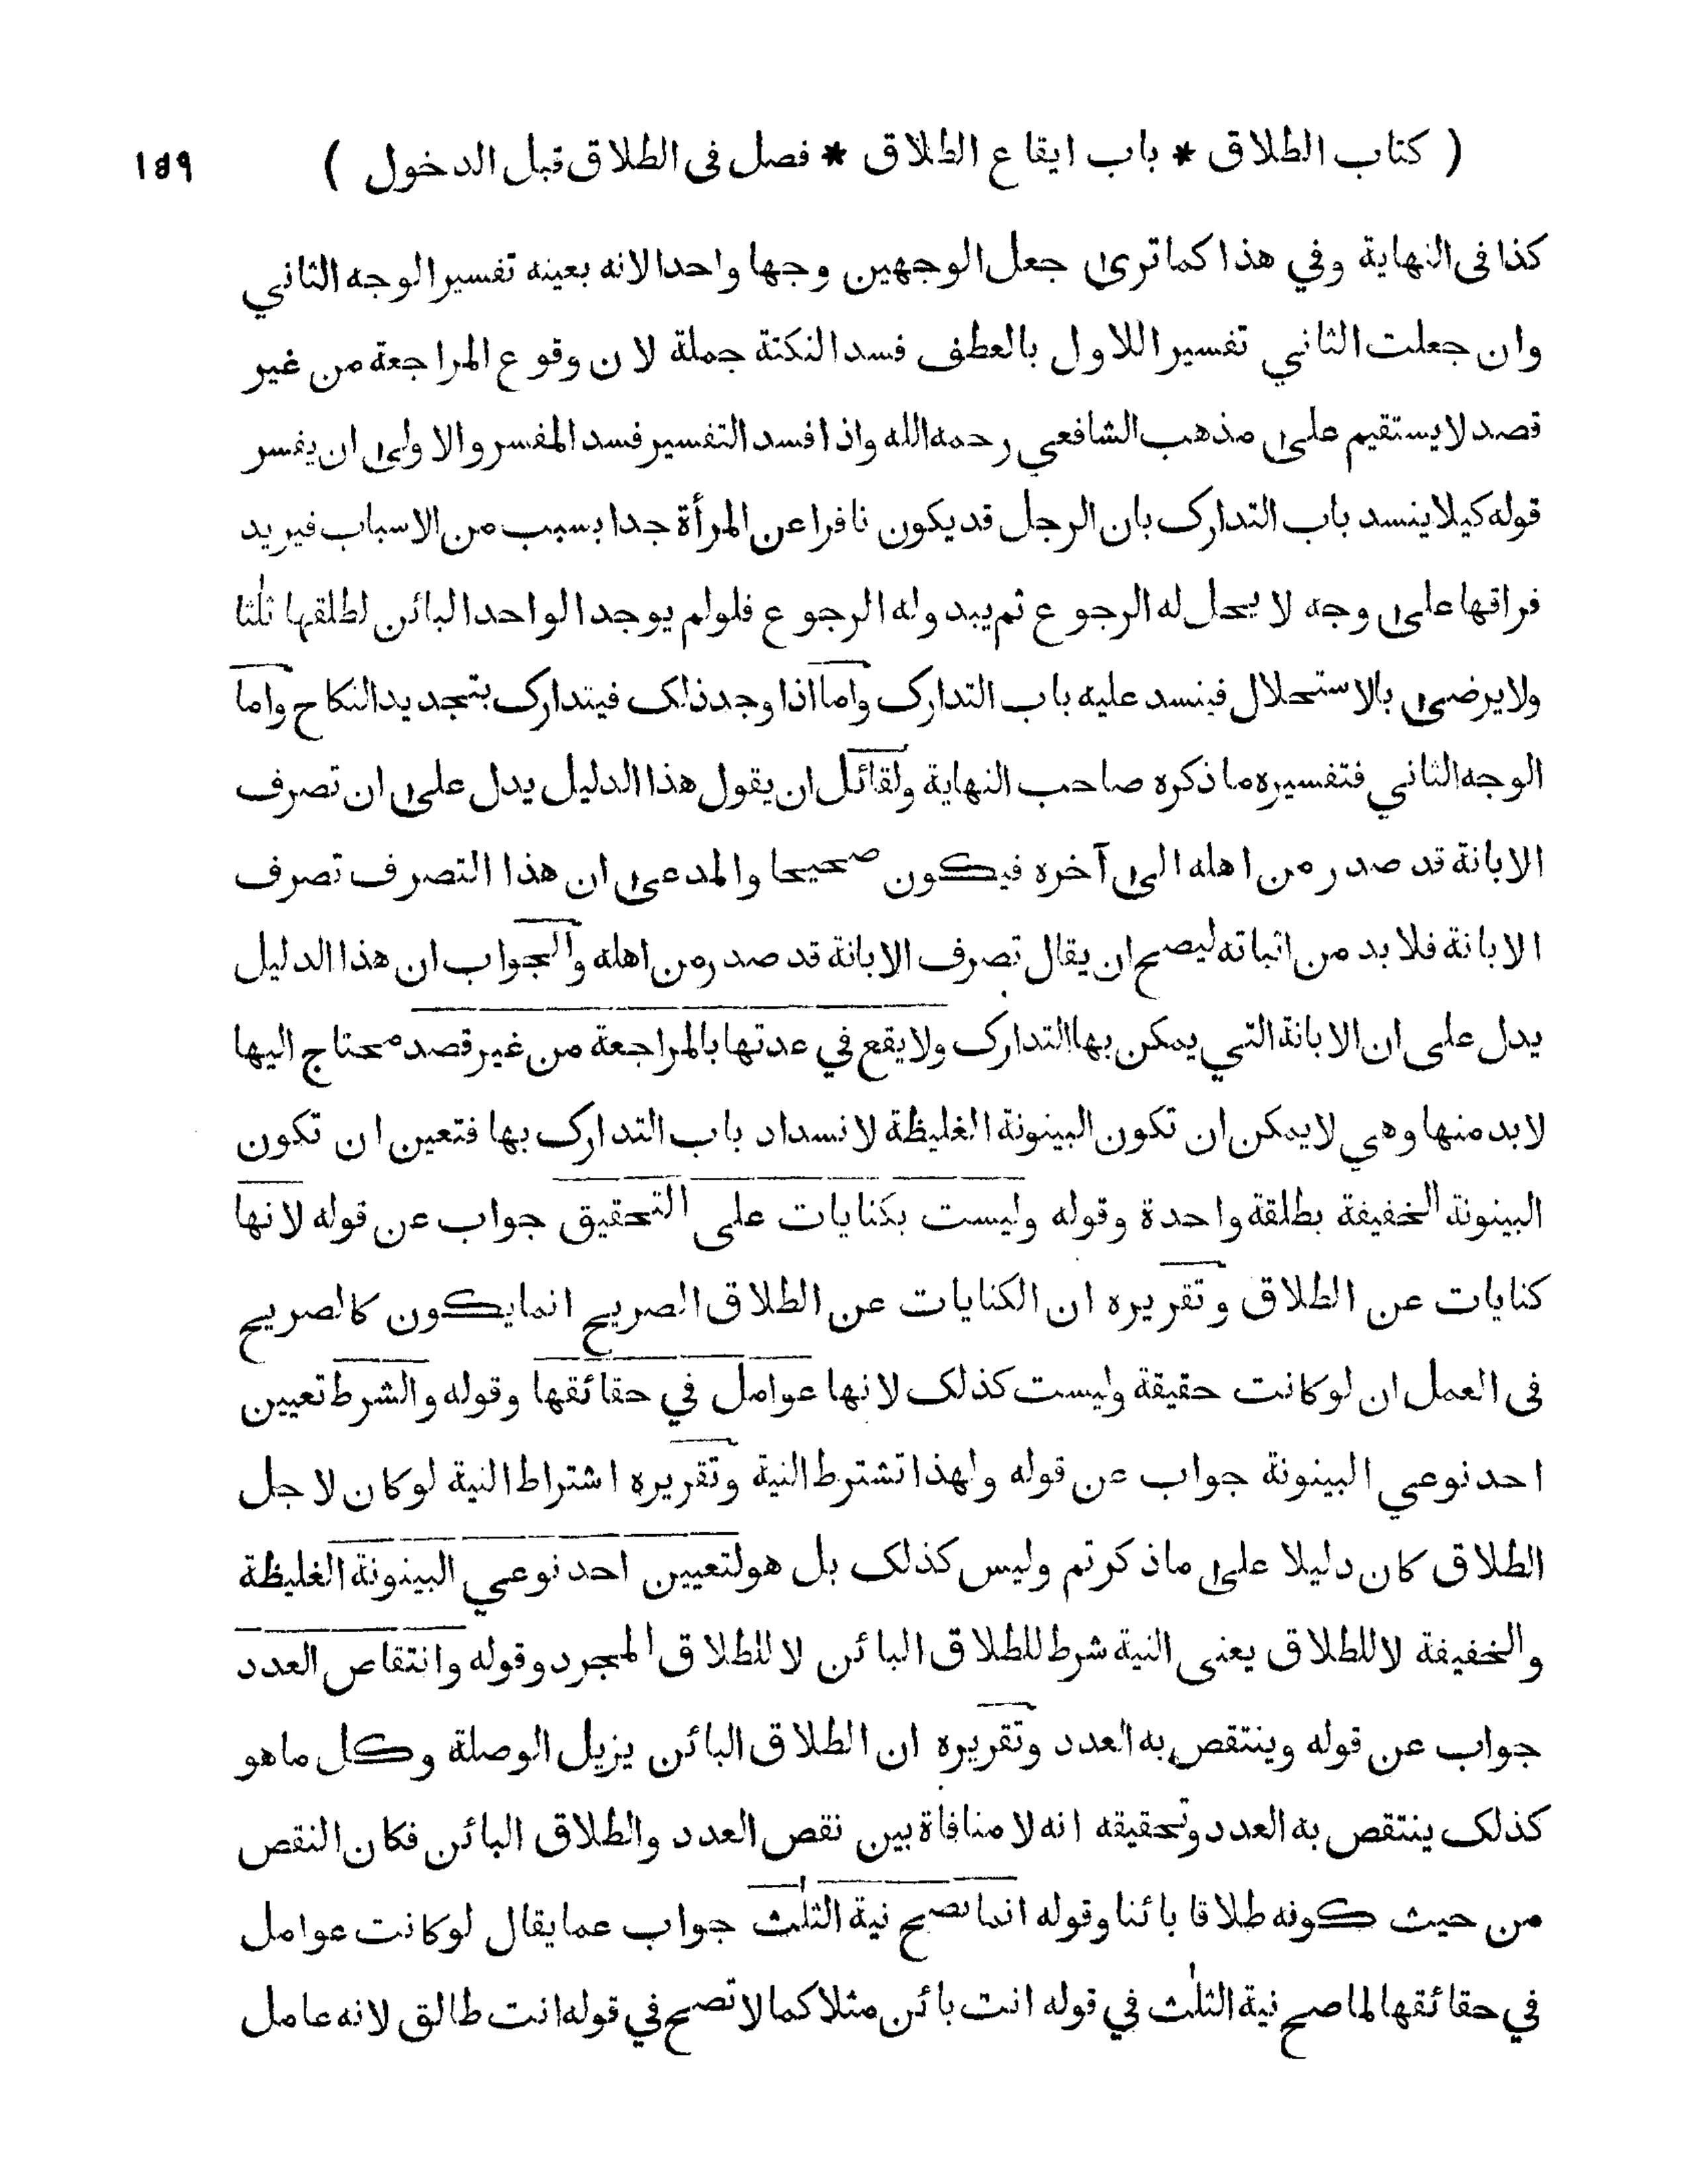 ( كتاب الطلاق * باب ايقاع الطلاق * فصل فى الطلاق قبل الدخول )
كذا فى النهاية وفي هذا كما ترى جعل الوجهين وجها واحدا لانه بعينه تفسير الوجه الثاني
وان جعلت الثاني تفسير اللاول بالعطف فسد النكتة جملة لان وقوع المراجعة من غير
قصد لا يستقيم على مذهب الشافعي رحمه الله واذا فسد التفسير فسد المفسر والاولى ان يفسر
قوله كيلا ينسد باب التدارك بان الرجل قد يكون نافرا عن المرأة جدا بسبب من الاسباب فيريد
فراقها على وجه لا يحل له الرجوع ثم يبدوله الرجوع فلولم يوجد الواحد البائن لطلقها ثلثا
ولا يرضى بالاستحلال فينسد عليه باب التدارك واما اذا وجد ذلك فيتدارك بتجديد النكاح واما
الوجه الثاني فتفسيره ما ذكره صاحب النهاية ولقائل ان يقول هذا الدليل يدل على ان تصرف
الابانة قد صدر من اهله الى آخره فيكون صحيحا والمدعى ان هذا التصرف تصرف
الابانة فلا بد من اثباته ليصح ان يقال تصرف الابانة قد صدر من اهله والجواب ان هذا الدليل
يدل على ان الابانة التي يمكن بها التدارك ولا يقع في عدتها بالمراجعة من غير قصد محتاج اليها
لابد منها وهي لا يمكن ان تكون البينونة الغليظة لانسداد باب التدارك بها فتعين ان تكون
البينونة الخفيفة بطلقة واحدة وقوله وليست بكنايات على التحقيق جواب عن قوله لانها
كنايات عن الطلاق وتقريره ان الكنايات عن الطلاق الصريح انما يكون كالصريح
فى العمل ان لو كانت حقيقة وليست كذلك لانها عوامل في حقائقها وقوله والشرط تعيين
احد نوعي البينونة جواب عن قوله ولهذا تشترط النية وتقريره اشتراط النية لو كان لاجل
الطلاق كان دليلا على ما ذكرتم وليس كذلك بل هو لتعيين احد نوعي البينونة الغليظة
والخفيفة لا للطلاق يعنى النية شرط للطلاق البائن لا للطلاق المجرد وقوله وانتقاص العدد
جواب عن قوله وينتقص به العدد وتقريره ان الطلاق البائن يزيل الوصلة وكل ما هو
كذلك ينتقص به العدد وتحقيقه انه لا منافاة بين نقص العدد والطلاق البائن فكان النقص
من حيث كونه طلاقا بائنا وقوله انما تصح نية الثلث جواب عما يقال لو كانت عوامل
في حقائقها لما صح نية الثلث في قوله انت بائن مثلا كما لا تصح في قوله انت طالق لانه عامل